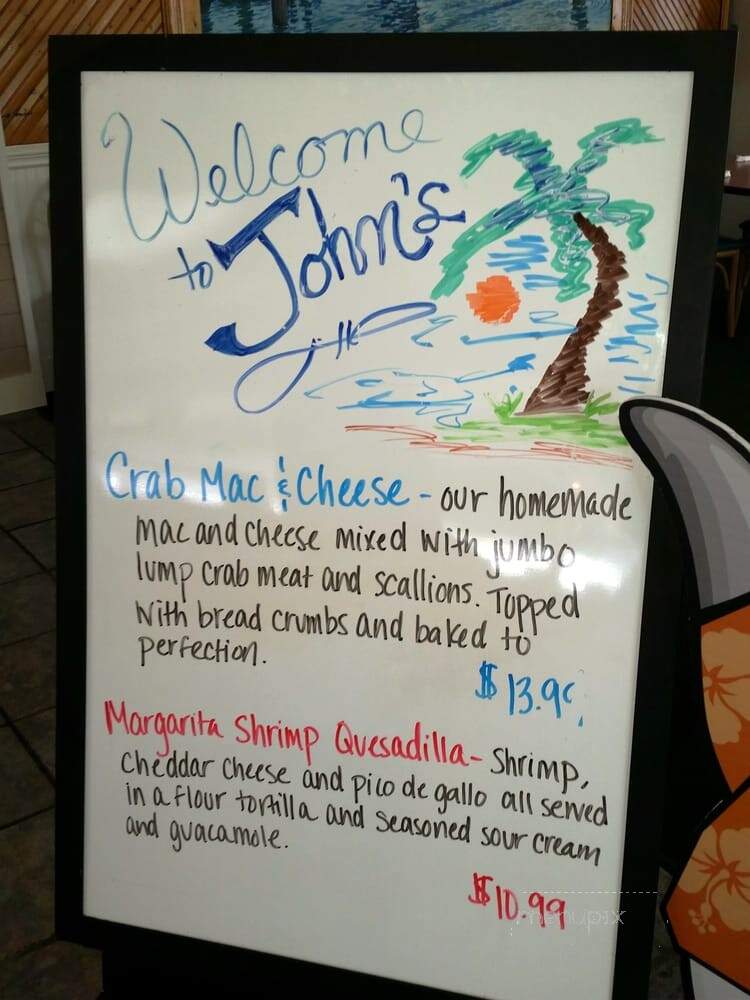 Welcome
to John's
Crab Mac & Cheese - our homemade
mac and cheese mixed with jumbo
lump crab meat and scallions. Topped
with bread crumbs and baked to
perfection.
Margarita Shrimp Quesadilla - Shrimp,
cheddar cheese and pico de gallo all served
in a flour tortilla and seasoned sour cream
and guacamole.
$10.99
menupix